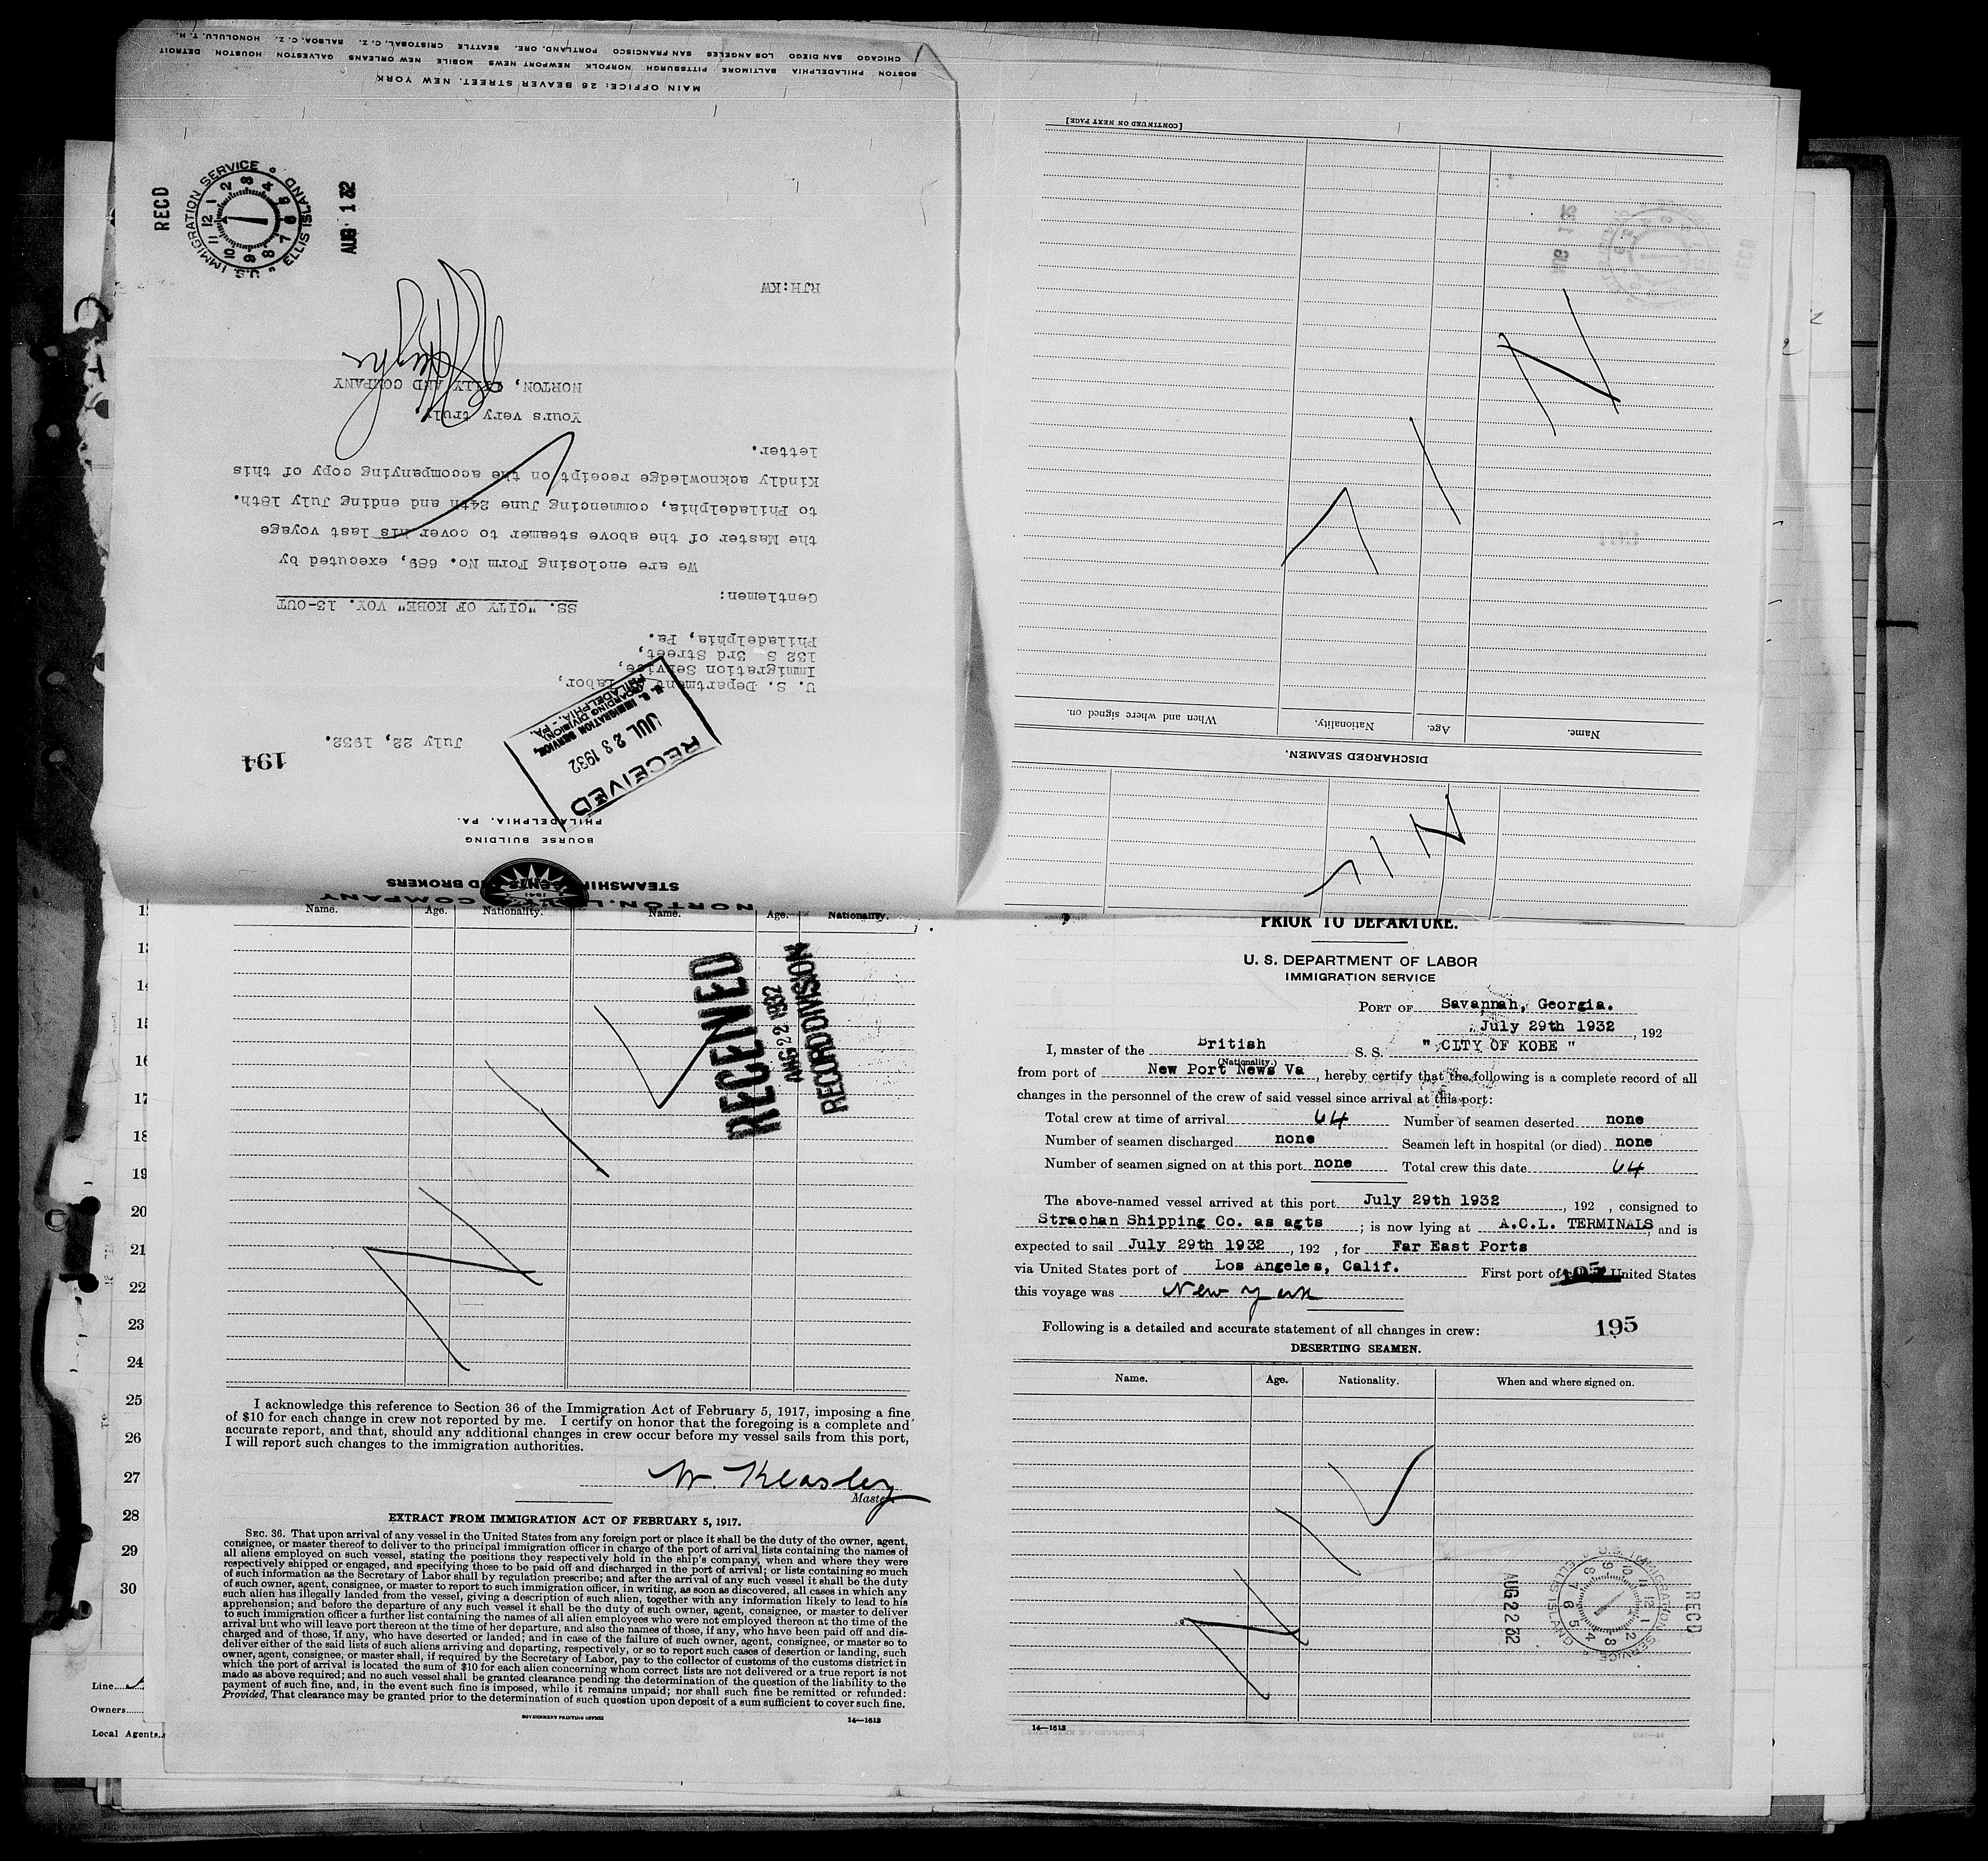 NORTON, LILLY COMPANY
STEAMSHIP AGENTS AND BROKERS
BOURSE BUILDING
PHILADELPHIA, PA.
194
July 22, 1932.
RECEIVED
JUL 23 1932
U. S. IMMIGRATION SERVICE,
(BOARDING DIVISION)
PHILADELPHIA, - PA.
U. S. Department Labor,
Immigration Service,
132 S 3rd Street,
Philadelphia, Pa.
Gentlemen:
SS. "CITY OF KOBE" VOY. 13-OUT
We are enclosing Form No. 689, executed by
the Master of the above steamer to cover his last voyage
to Philadelphia, commencing June 24th and ending July 18th.
Kindly acknowledge receipt on the accompanying copy of this
letter.
Yours very truly
NORTON, LILLY AND COMPANY
RJH:KW
RECD
U.S. IMMIGRATION SERVICE ELLIS ISLAND
AUG 1 32
MAIN OFFICE: 26 BEAVER STREET, NEW YORK
BOSTON PHILADELPHIA BALTIMORE PITTSBURGH NORFOLK NEWPORT NEWS MOBILE NEW ORLEANS GALVESTON HOUSTON DETROIT
CHICAGO SAN DIEGO LOS ANGELES SAN FRANCISCO PORTLAND, ORE. SEATTLE CRISTOBAL, C. Z. BALBOA, C. Z. HONOLULU, T. H.
NIL
DISCHARGED SEAMEN.
Name. Age. Nationality. When and where signed on.
NIL
[CONTINUED ON NEXT PAGE]
Name. Age. Nationality. Name. Age. Nationality.
RECEIVED
AUG 22 1932
RECORD DIVISION
NIL
14
16
17
18
19
20
21
22
23
24
25
26
27
28
29
30
I acknowledge this reference to Section 36 of the Immigration Act of February 5, 1917, imposing a fine
of $10 for each change in crew not reported by me. I certify on honor that the foregoing is a complete and
accurate report, and that, should any additional changes in crew occur before my vessel sails from this port,
I will report such changes to the immigration authorities.
W. Keasley
Master.
EXTRACT FROM IMMIGRATION ACT OF FEBRUARY 5, 1917.
SEC. 36. That upon arrival of any vessel in the United States from any foreign port or place it shall be the duty of the owner, agent,
consignee, or master thereof to deliver to the principal immigration officer in charge of the port of arrival lists containing the names of
all aliens employed on such vessel, stating the positions they respectively hold in the ship's company, when and where they were
respectively shipped or engaged, and specifying those to be paid off and discharged in the port of arrival; or lists containing so much
of such information as the Secretary of Labor shall by regulation prescribe; and after the arrival of any such vessel it shall be the duty
of such owner, agent, consignee, or master to report to such immigration officer, in writing, as soon as discovered, all cases in which any
such alien has illegally landed from the vessel, giving a description of such alien, together with any information likely to lead to his
apprehension; and before the departure of any such vessel it shall be the duty of such owner, agent, consignee, or master to deliver
to such immigration officer a further list containing the names of all alien employees who were not employed thereon at the time of the
arrival but who will leave port thereon at the time of her departure, and also the names of those, if any, who have been paid off and dis-
charged and of those, if any, who have deserted or landed; and in case of the failure of such owner, agent, consignee, or master so to
deliver either of the said lists of such aliens arriving and departing, respectively, or so to report such cases of desertion or landing, such
owner, agent, consignee, or master shall, if required by the Secretary of Labor, pay to the collector of customs of the customs district in
which the port of arrival is located the sum of $10 for each alien concerning whom correct lists are not delivered or a true report is not
made as above required; and no such vessel shall be granted clearance pending the determination of the question of the liability to the
payment of such fine, and, in the event such fine is imposed, while it remains unpaid; nor shall such fine be remitted or refunded:
Provided, That clearance may be granted prior to the determination of such question upon deposit of a sum sufficient to cover such fine.
GOVERNMENT PRINTING OFFICE 14—1613
Line
Owners
Local Agents
PRIOR TO DEPARTURE.
U. S. DEPARTMENT OF LABOR
IMMIGRATION SERVICE
PORT OF Savannah, Georgia.
July 29th 1932, 192
I, master of the British S. S. " CITY OF KOBE "
(Nationality.)
from port of New Port News Va, hereby certify that the following is a complete record of all
changes in the personnel of the crew of said vessel since arrival at this port:
Total crew at time of arrival 64 Number of seamen deserted none
Number of seamen discharged none Seamen left in hospital (or died) none
Number of seamen signed on at this port none Total crew this date 64
The above-named vessel arrived at this port July 29th 1932, 192 , consigned to
Strachan Shipping Co. as agts ; is now lying at A.C.L. TERMINALS, and is
expected to sail July 29th 1932, 192 , for Far East Ports
via United States port of Los Angeles, Calif. First port of United States
this voyage was New York
Following is a detailed and accurate statement of all changes in crew: 195
DESERTING SEAMEN.
Name. Age. Nationality. When and where signed on.
NIL
RECD
U.S. IMMIGRATION SERVICE ELLIS ISLAND
AUG 22 32
14—1613